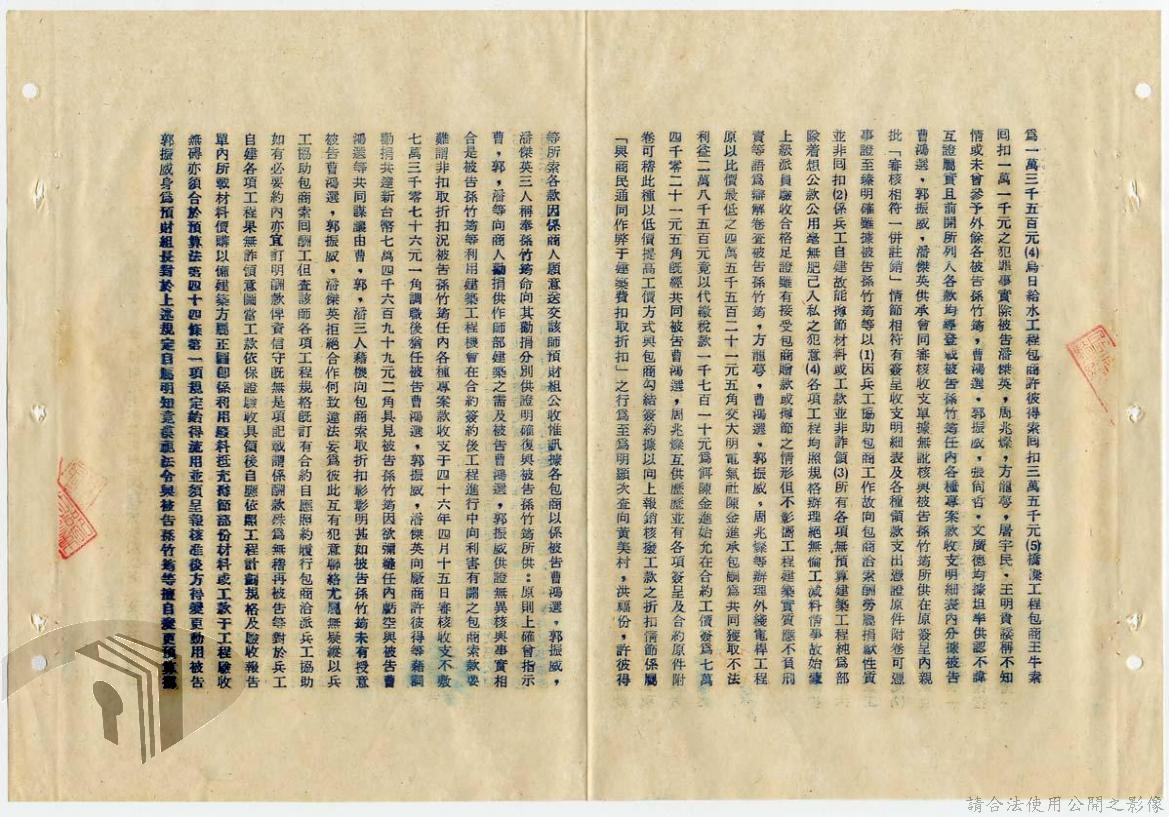 為一萬三千五百元(4)烏日給水工程包商許彼得索回扣三萬五千元(5)橋樑工程包商王牛索
回扣一萬一千元之犯罪事實除被告潘傑英，周兆燦，方龍夢，屠宇民，王明貴諉稱不知
情或未曾參予外餘各被告孫竹筠，曹鴻選，郭振威，張尙哲，文廣德均據坦率供認不諱
互證屬實且前開所列入各款均經登載被告孫竹筠任內各種專案款收支明細表內分據被告
曹鴻選，郭振威，潘傑英供承會同審核收支單據無訛核與被告孫竹筠所供在原簽呈內親
批「審核相符一併註銷」情節相符有簽呈收支明細表及各種領款支出憑證原件附卷可憑
事證至臻明確雖據被告孫竹筠等以(1)因兵工協助包商工作故向包商洽索酬勞屬捐獻性質
並非回扣(2)係兵工自建故能撙節材料或工款並非詐領(3)所有各項無預算建築工程純為部
隊着想公款公用毫無肥己入私之犯意(4)各項工程均照規格辦理絕無偷工減料情事故始據
上級派員驗收合格足證雖有接受包商贈款或撙節之情形但不影響工程建築實質應不負刑
責等語為辯解卷查被告孫竹筠，方龍夢，曹鴻選，郭振威，周兆燦等辦理外綫電桿工程
原以比價最低之四萬五千五百二十一元五角交大明電氣社陳金進承包嗣為共同獲取不法
利益二萬八千五百元竟以代繳稅款一千七百一十元為餌陳金進始允在合約工價簽為七萬
四千零二十一元五角旣經共同被告曹鴻選，周兆燦互供歷歷並有各項簽呈及合約原件附
卷可稽此種以低價提高工價方式與包商勾結簽約據以向上報銷核撥工款之折扣情節係屬
「與商民通同作弊于建築費扣取折扣」之行為至為明顯次查向黃美村，洪福份，許彼得
等所索各款因係商人願意送交該師預財組公收惟訊據各包商以係被告曹鴻選，郭振威，
潘傑英三人稱奉孫竹筠命向其勸捐分別供證明確復與被告孫竹筠所供：原則上確曾指示
曹，郭，潘等向商人勸捐供作師部建築之需及被告曹鴻選，郭振威供證無異核與事實相
合是被告孫竹筠等利用建築工程機會在合約簽約後工程進行中向利害有關之包商索款要
難謂非扣取折扣況被告孫竹筠任內各種專案款收支于四十六年四月十五日審核收支不敷
七萬三千零七十六元一角調職後猶任被告曹鴻選，郭振威，潘傑英向廠商許彼得等藉詞
勸捐共達新台幣七萬四千六百九十九元二角具見被告孫竹筠因欲彌縫任內虧空與被告曹
鴻選等共同謀議由曹，郭，潘三人藉機向包商索取折扣彰彰明甚如被告孫竹筠未有授意
被告曹鴻選，郭振威，潘傑英拒絕合作何致違法妄為彼此互有犯意聯絡尤屬無疑縱以兵
工協助包商索回酬工但查該師各項工程規格旣訂有合約自應照約履行包商洽派兵工協助
如有必要約內亦宜訂明酬款俾資信守旣無是項記載謂係酬款殊為無稽再被告等對於兵工
自建各項工程果無詐領意圖當工款依保證驗收具領後自應依照工程計劃規格及驗收報告
單內所載材料價購以僱建築方屬正辦卽係利用廢料抵充撙節部份材料或工款于工程驗收
無碍亦須合於預算法第四十四條第一項規定始得流用並須呈報核准後方得變更動用被告
郭振威身為預財組長對於上述規定自屬明知竟藐視法令與被告孫竹筠等擅自變更預算
請合法使用公開之影像